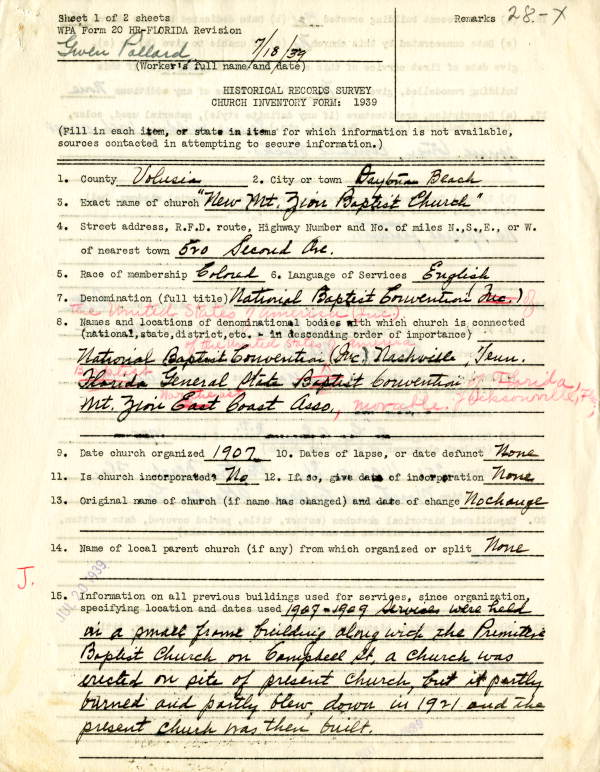 Sheet 1 of 2 sheets Remarks 28-X
WPA Form 20 HR-FLORIDA Revision
Gwen Pollard 7/18/39
(Worker's full name and date)
HISTORICAL RECORDS SURVEY
CHURCH INVENTORY FORM: 1939
(Fill in each item, or state in items for which information is not available,
sources contacted in attempting to secure information.)
1. County Volusia 2. City or town Daytona Beach
3. Exact name of church "New Mt. Zion Baptist Church"
4. Street address, R.F.D. route, Highway Number and No. of miles N.,S.,E., or W.
of nearest town 520 Second Ave.
5. Race of membership Colored 6. Language of Services English
7. Denomination (full title) National Baptist Convention (Inc.) of
the United States of America (Inc.)
8. Names and locations of denominational bodies with which church is connected
(national,state,district,etc. - in descending order of importance)
of the United States of America
National Baptist Convention (Inc.) Nashville, Tenn.
Baptist of Florida,
Florida General State Baptist Convention Jacksonville, Fla.
Northeast
Mt. Zion East Coast Asso., movable.
9. Date church organized 1907 10. Dates of lapse, or date defunct None
11. Is church incorporated? No 12. If so, give date of incorporation None
13. Original name of church (if name has changed) and date of change No change
14. Name of local parent church (if any) from which organized or split None
J.
15. Information on all previous buildings used for services, since organization,
specifying location and dates used 1907-1909 Services were held
in a small frame building along with the Primitive
Baptist Church on Campbell St, a church was
erected on site of present church, but it partly
burned and partly blew down in 1921 and the
present church was then built.